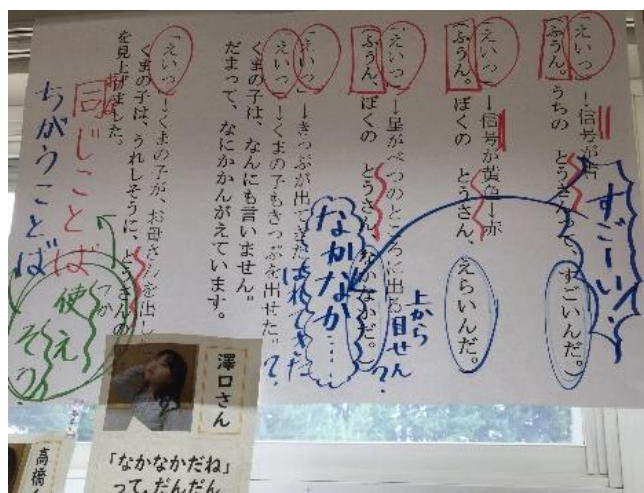 「えいっ」→信号が青
「ふうん。うちの とうさんって、すごいんだ。」
すごーい!
「えいっ」→信号が黄色→赤
「ふうん。ぼくの とうさん、えらいんだ。」
「えいっ」→星がべつのところに出る
「ふうん、ぼくの とうさん、なかなかだ。」
上から目せん?
なかなか……
「えいっ」→きっぷが出てきた
「えいっ」→くまの子もきっぷを出せた。
くまの子は、なんにも言いません。
だまって、なにかかんがえています。
「えいっ」→くまの子が、お母さんを出し
くまの子は、うれしそうに、とうさんの
を見上げました。
同じことば
ちがうことば
使えそう
つか
澤口さん
「なかなかだね」
って、だんだん
高橋